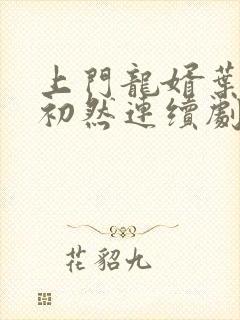 上門龍婿葉
初然連續劇
花貂九